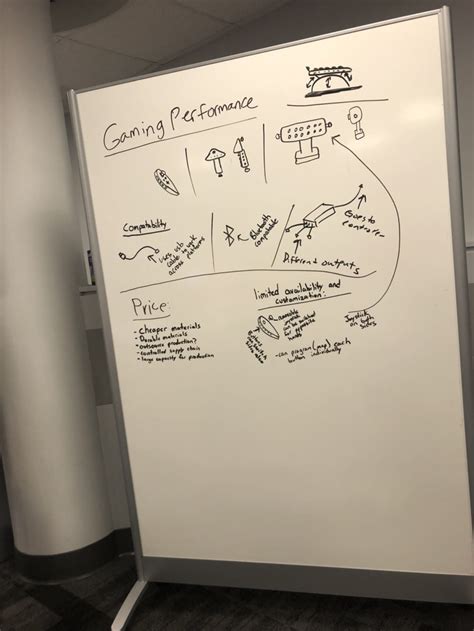 Gaming Performance
Compatability
Uses usb
cable to work
across platforms
Bluetooth
compatable
Goes to
controller
Different outputs
Price:
- cheaper materials
- Durable materials
- outsource production?
- controlled supply chain
- large capacity for production
limited availability and
customization:
can be switched
for opposite
hands
- can program (map) each
button individually
Joystick